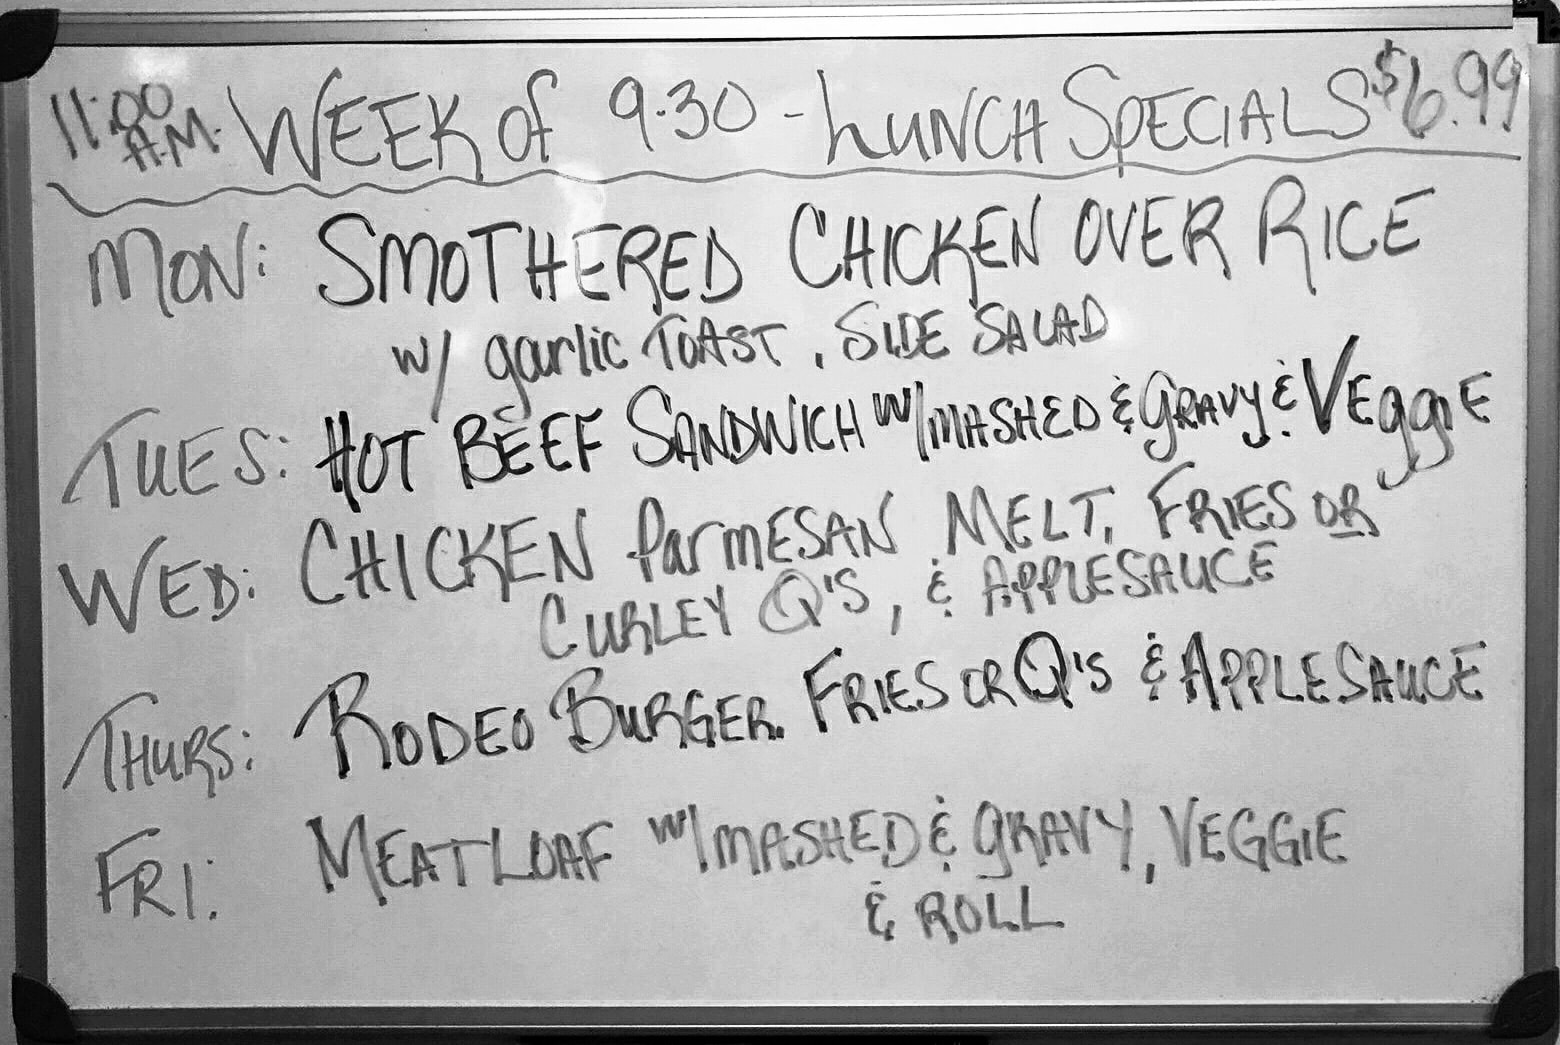 11:00 A.M. WEEK of 9.30 - LUNCH SPECIALS $6.99
MON: SMOTHERED CHICKEN OVER RICE
w/ garlic TOAST, SIDE SALAD
TUES: HOT BEEF SANDWICH W/MASHED & GRAVY & VEggIE
WED: CHICKEN ParmESAN MELT, FRIES OR
CURLEY Q'S, & APPLESAUCE
THURS: RODEO BURGER. FRIES OR Q'S & APPLESAUCE
FRI: MEATLOAF W/MASHED & GRAVY, VEGGIE
& ROLL